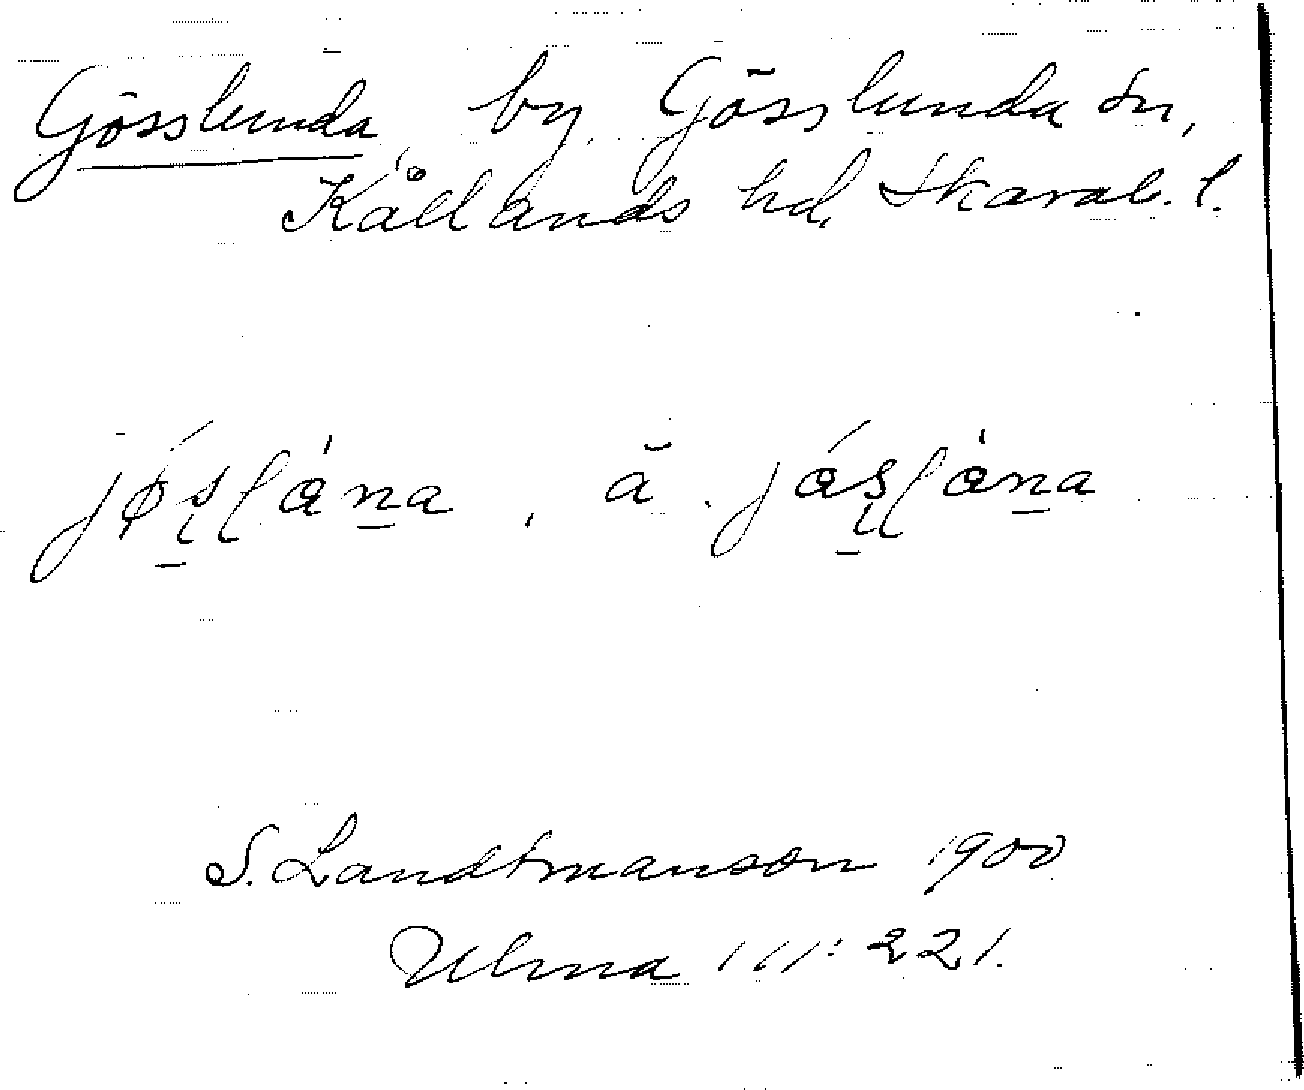 Gösslunda, by, Gösslunda sn,
Kållands hd, Skarab. l.
jǿsļána, ă. jásļána
S. Landtmanson 1900
Ulma 111:221.